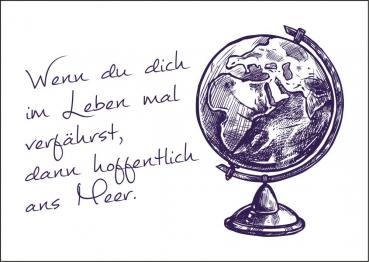 Wenn du dich
im Leben mal
verfährst,
dann hoffentlich
ans Meer.